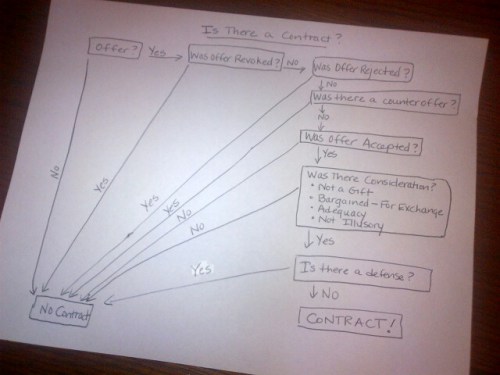 Is There a Contract?
Offer? Yes Was Offer Revoked? No Was Offer Rejected?
No
Was there a counteroffer?
No
Was Offer Accepted?
Yes
Was There Consideration?
• Not a Gift
• Bargained-For Exchange
• Adequacy
• Not Illusory
No
Yes
Yes
Yes
No
No
Yes
Yes
Is there a defense?
No
No Contract
CONTRACT!